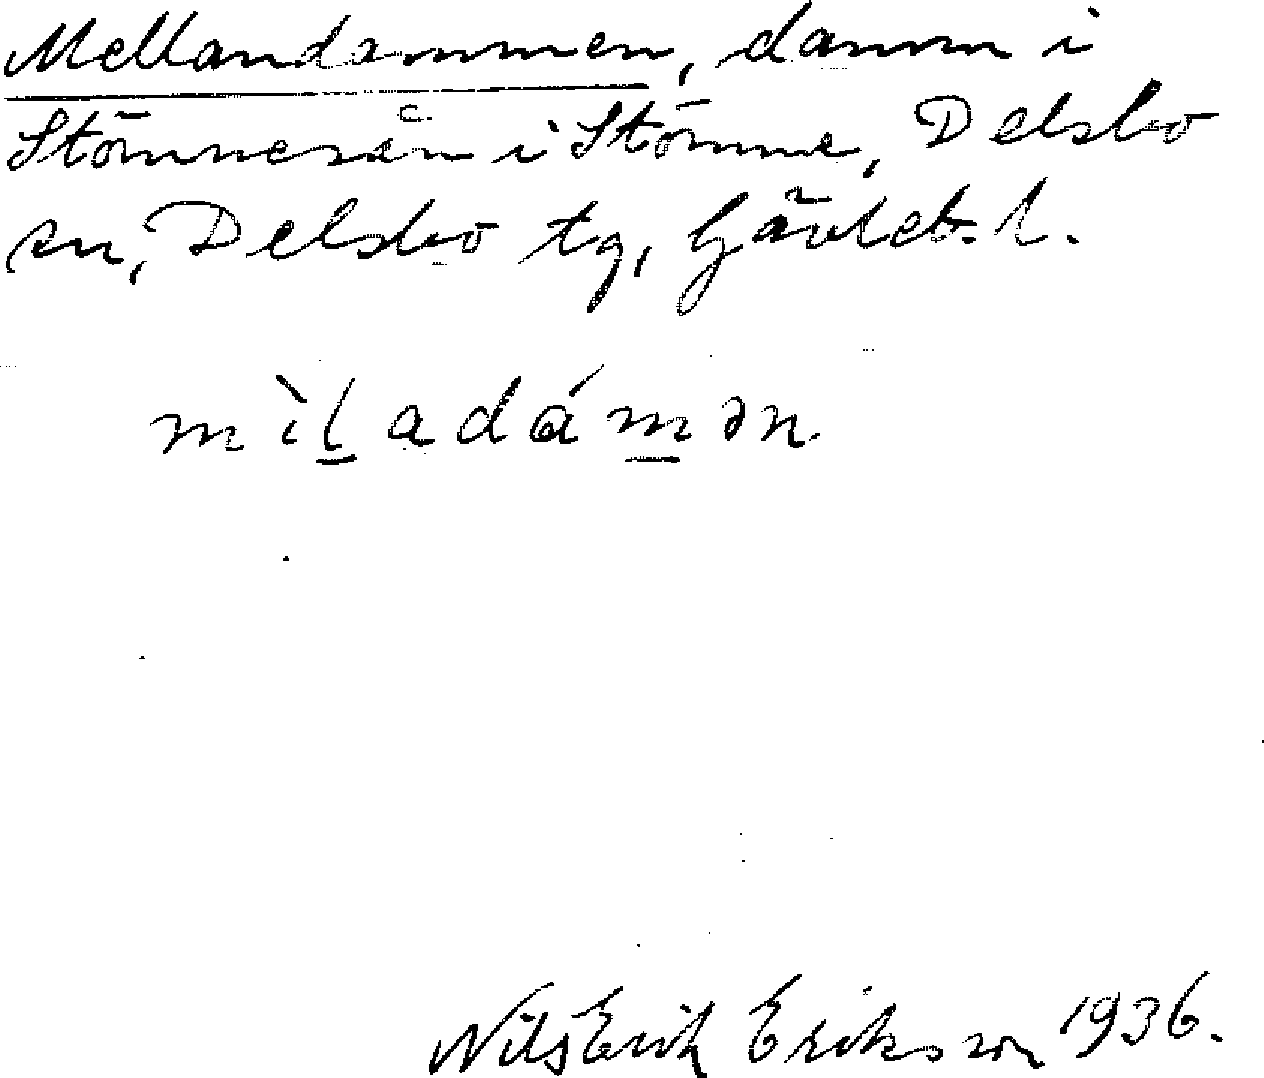 Mellandammen, damm i
Stömnesån i Stömne, Delsbo
sn, Delsbo tg, Gävleb. l.
mìl̲adám̲ən
Nils Erik Eriksson 1936.